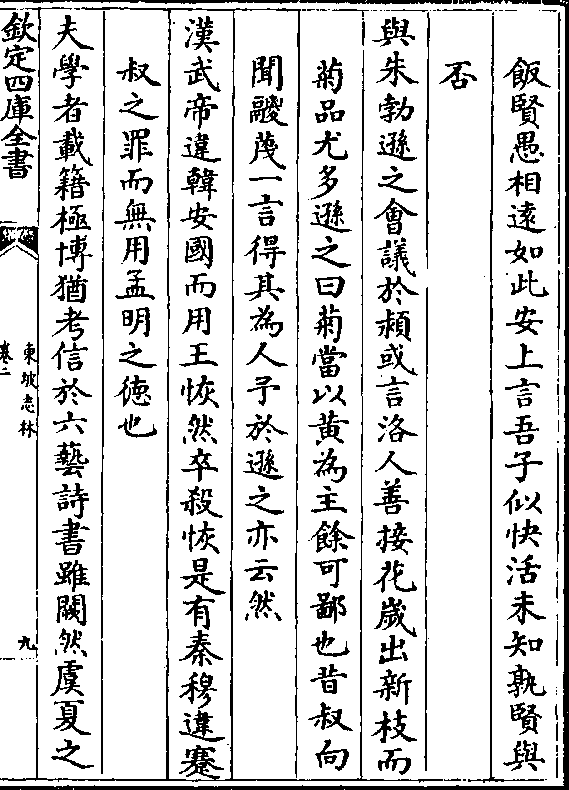 飯賢愚相遠如此安上言吾子似快活未知孰賢與
否
與朱勃遜之會議於潁或言洛人善接花歲出新枝而
菊品尤多遜之曰菊當以黃為主餘可鄙也昔叔向
聞鬷蔑一言得其為人予於遜之亦云然
漢武帝違韓安國而用王恢然卒殺恢是有秦穆違蹇
叔之罪而無用孟明之德也
夫學者載籍極博猶考信於六藝詩書雖闕然虞夏之
欽定四庫全書
東坡志林
卷二
九